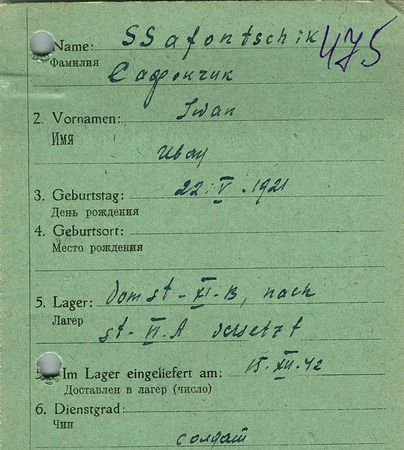 Name: SSafontschik 475
Фамилия Сафончик
2. Vornamen: Iwan
Имя
Иван
3. Geburtstag: 22. V. 1921
День рождения
4. Geburtsort:
Место рождения
5. Lager: Vom st-XI-B, nach
Лагер st-VI.A versetzt
Im Lager eingeliefert am: 15. XII. 42
Доставлен в лагер (число)
6. Dienstgrad:
Чин
солдат